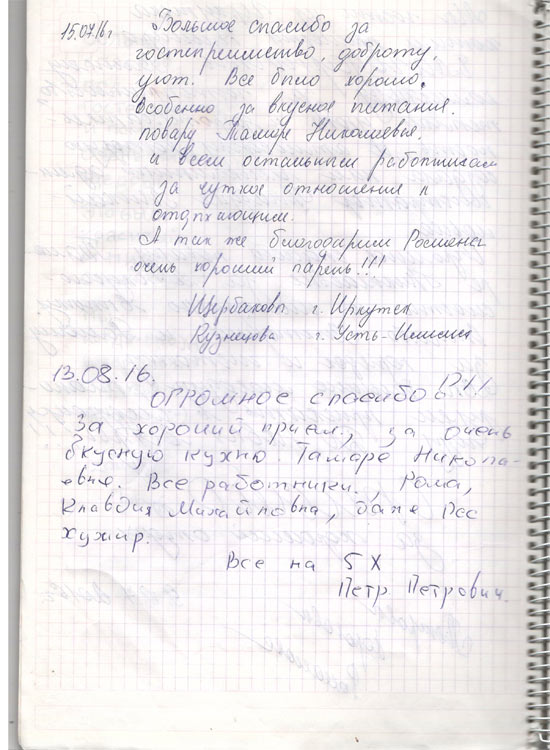 15.07.16г Большое спасибо за
гостеприимство, доброту,
уют. Все было хорошо,
особенно за вкусное питания.
повару Тамаре Николаевне.
и всем остальным работникам
за чуткое отношения к
отдыхающим.
А так же благодарим Романа
очень хороший парень!!!
Щербакова г. Иркутск
Кузнецова г. Усть-Илимск
13.08.16.
Огромное спасибо!!!
За хороший прием, за очень
вкусную кухню. Тамаре Никола-
евне. Все работники, Рома,
Клавдия Михайловна, баня
Хужир.
Все на 5 Х
Петр Петрович.